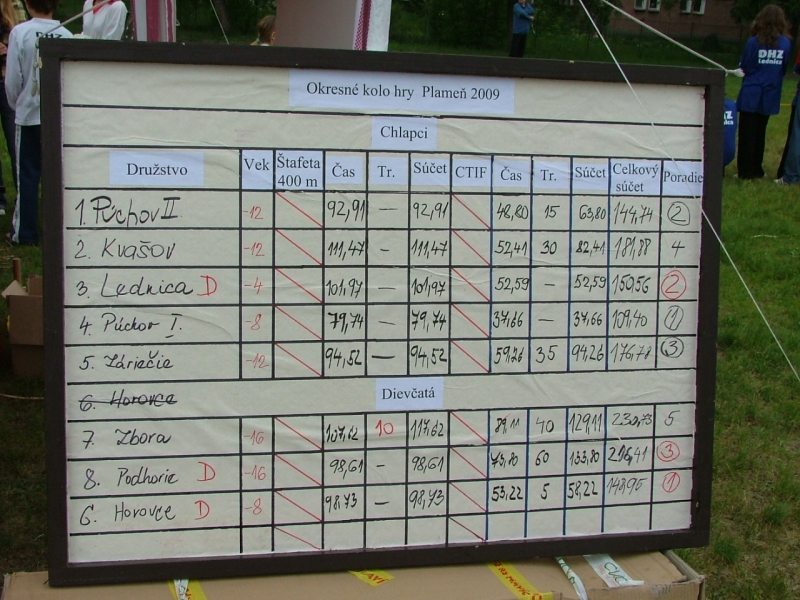 DHZ
DHZ
Lednica
Okresné kolo hry Plameň 2009
Chlapci
Družstvo Vek Štafeta 400 m Čas Tr. Súčet CTIF Čas Tr. Súčet Celkový súčet Poradie
1. Púchov II -12 92,91 — 92,91 48,80 15 63,80 144,74 2
2. Kvašov -12 111,47 — 111,47 52,41 30 82,41 181,88 4
3. Lednica D -4 101,97 — 101,97 52,59 — 52,59 150,56 2
4. Púchov I. -8 79,74 — 79,74 37,66 — 37,66 109,40 1
5. Záriečie -12 94,52 — 94,52 35 94,26 176,78 3
6. Horovce
Dievčatá
7. Zbora -16 107,62 10 117,62 40 129,11 230,73 5
8. Podhorie D -16 98,61 — 98,61 73,80 60 133,80 216,41 3
6. Horovce D -8 98,73 — 98,73 53,22 5 58,22 148,95 1